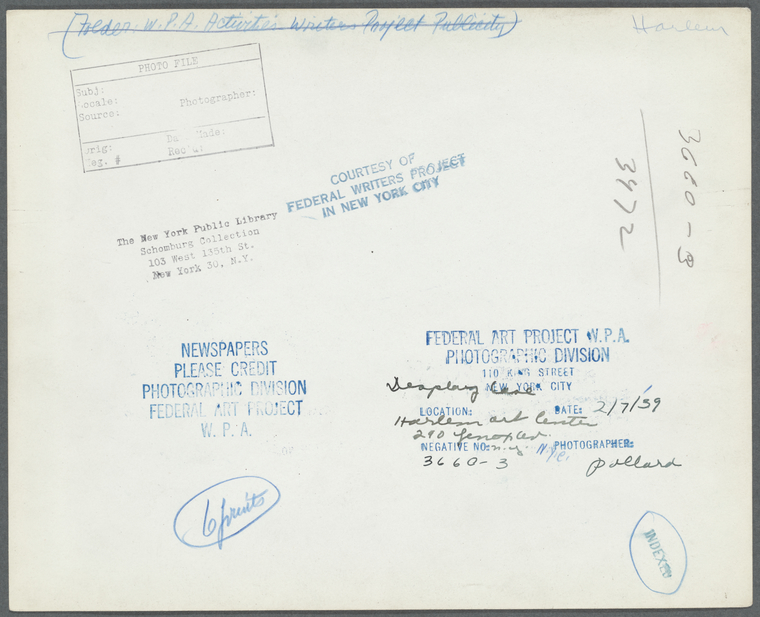 (Folder: W.P.A. Activities Writers Project Publicity)
Harlem
PHOTO FILE
Subj:
Locale:
Photographer:
Source:
Orig:
Date Made:
Neg. #
Rec'd:
COURTESY OF
FEDERAL WRITERS PROJECT
IN NEW YORK CITY
3660-3
3472
The New York Public Library
Schomburg Collection
103 West 135th St.
New York 30, N.Y.
NEWSPAPERS
PLEASE CREDIT
PHOTOGRAPHIC DIVISION
FEDERAL ART PROJECT
W. P. A.
FEDERAL ART PROJECT W.P.A.
PHOTOGRAPHIC DIVISION
110 KING STREET
NEW YORK CITY
Display Case
LOCATION: DATE: 2/7/39
Harlem art Center
290
NEGATIVE NO: n.y. N.Y.C. PHOTOGRAPHER:
3660-3 Pollard
6 prints
INDEXED